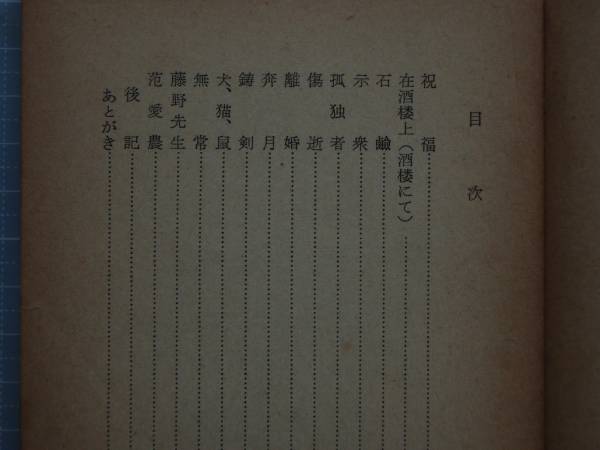 目次
祝福
在酒楼上（酒楼にて）
石鹼
示衆
孤独者
傷逝
離婚
奔月
鋳剣
犬、猫、鼠
無常
藤野先生
范愛農
後記
あとがき